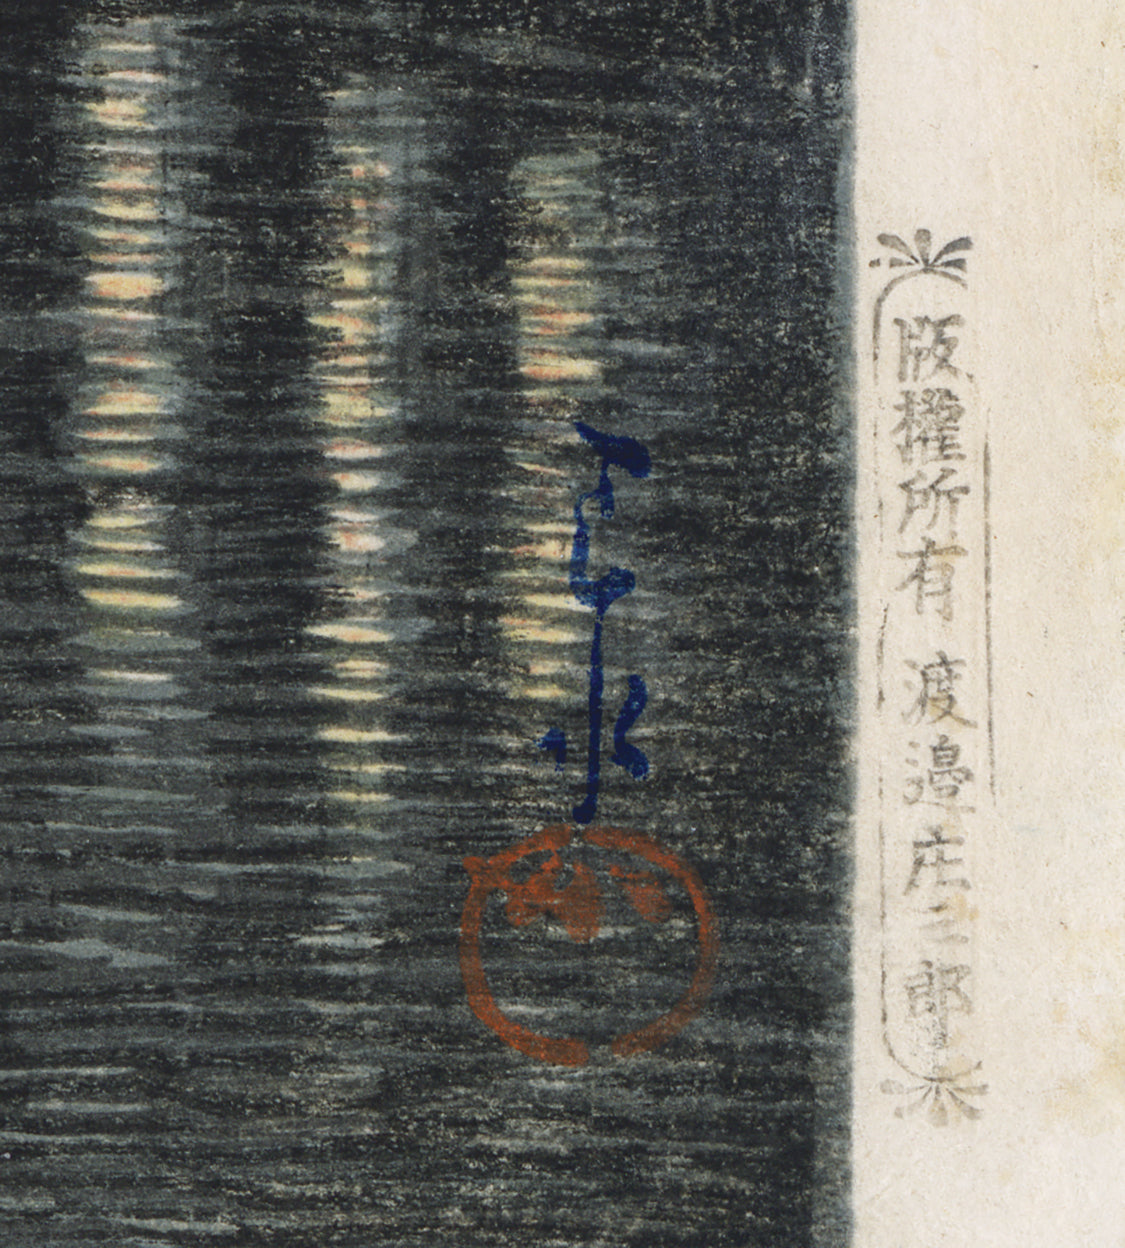 版權所有 渡邊庄三郎
巴水